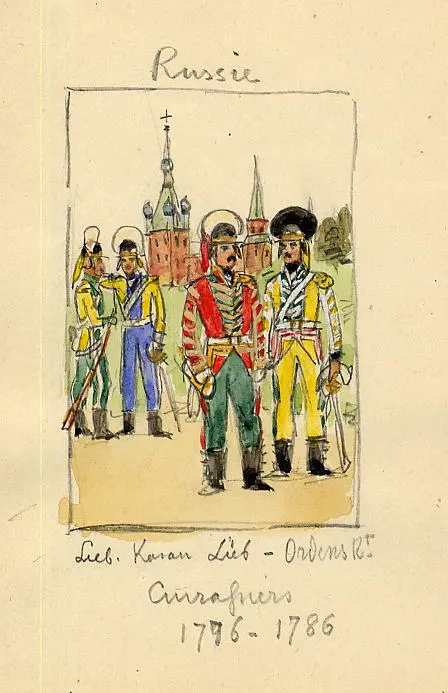 Russie
Lieb. Kasan Lieb - Ordens Rt.
Cuirassiers
1796 - 1786